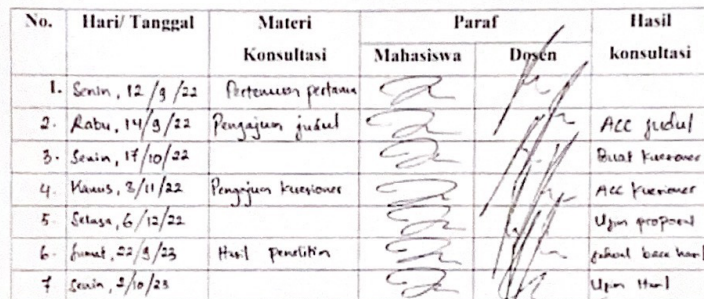 No. Hari/ Tanggal Materi Konsultasi Paraf Hasil konsultasi
Mahasiswa Dosen
1. Senin, 12/9/22 Pertemuan pertama
2. Rabu, 14/9/22 Pengajuan judul ACC judul
3. Senin, 17/10/22 Buat kuesioner
4. Kamis, 3/11/22 Pengajuan kuesioner ACC kuesioner
5. Selasa, 6/12/22 Ujian proposal
6. Jumat, 22/9/23 Hasil penelitian
7 Senin, 2/10/23 Ujian Hasil